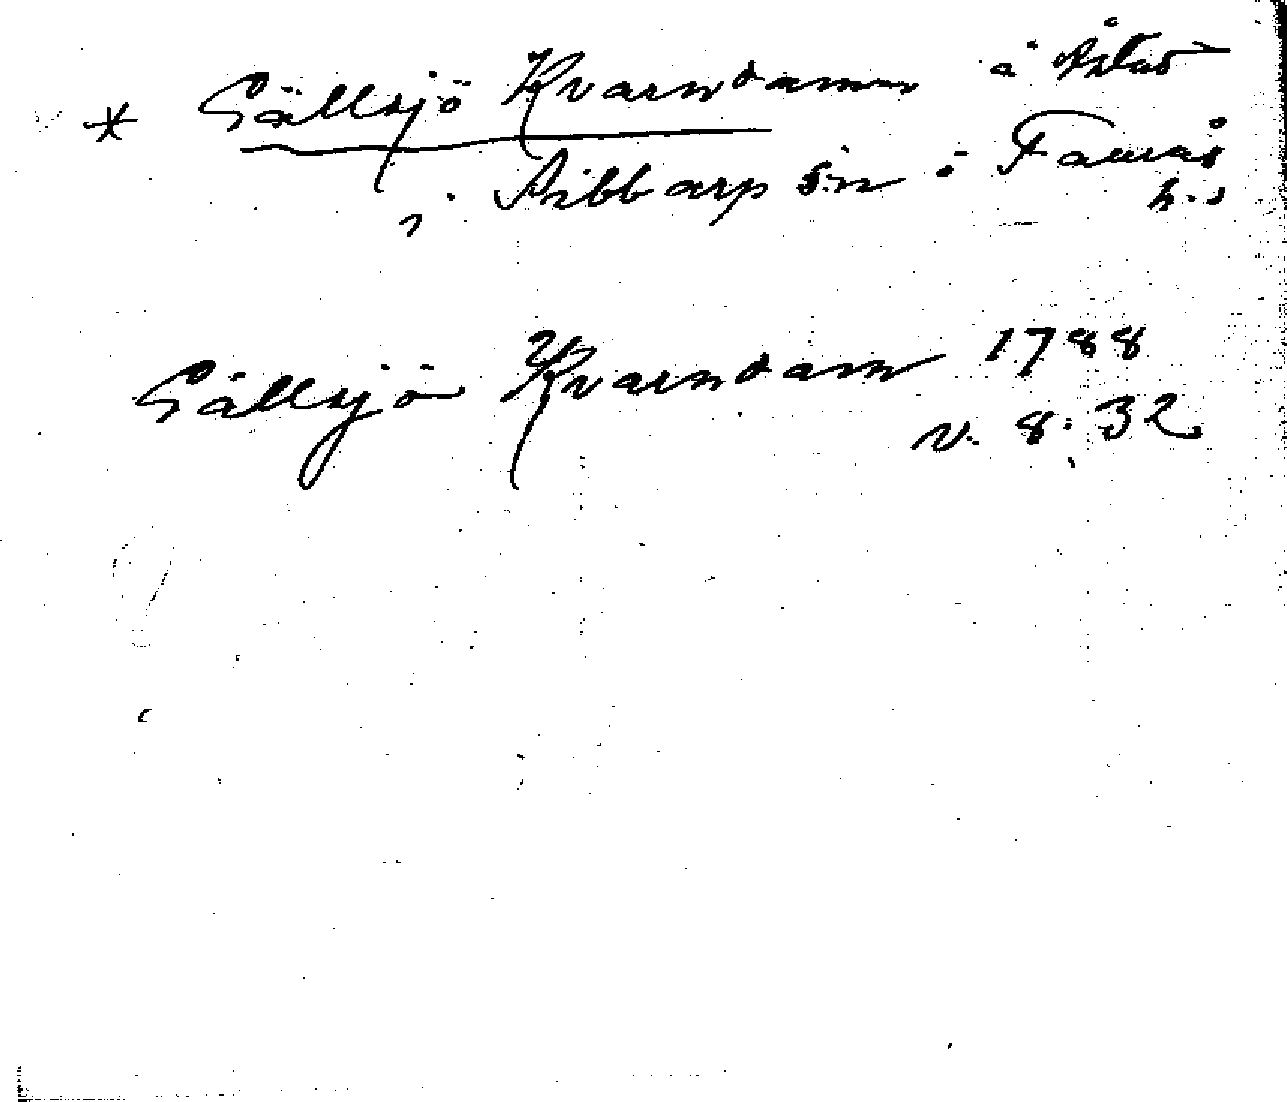 * Gällsjö Kvarndamm å Åstad
i Sibbarp sn i Faurås
h.
Gällsjö Kvarndam 1788
v. 8: 32